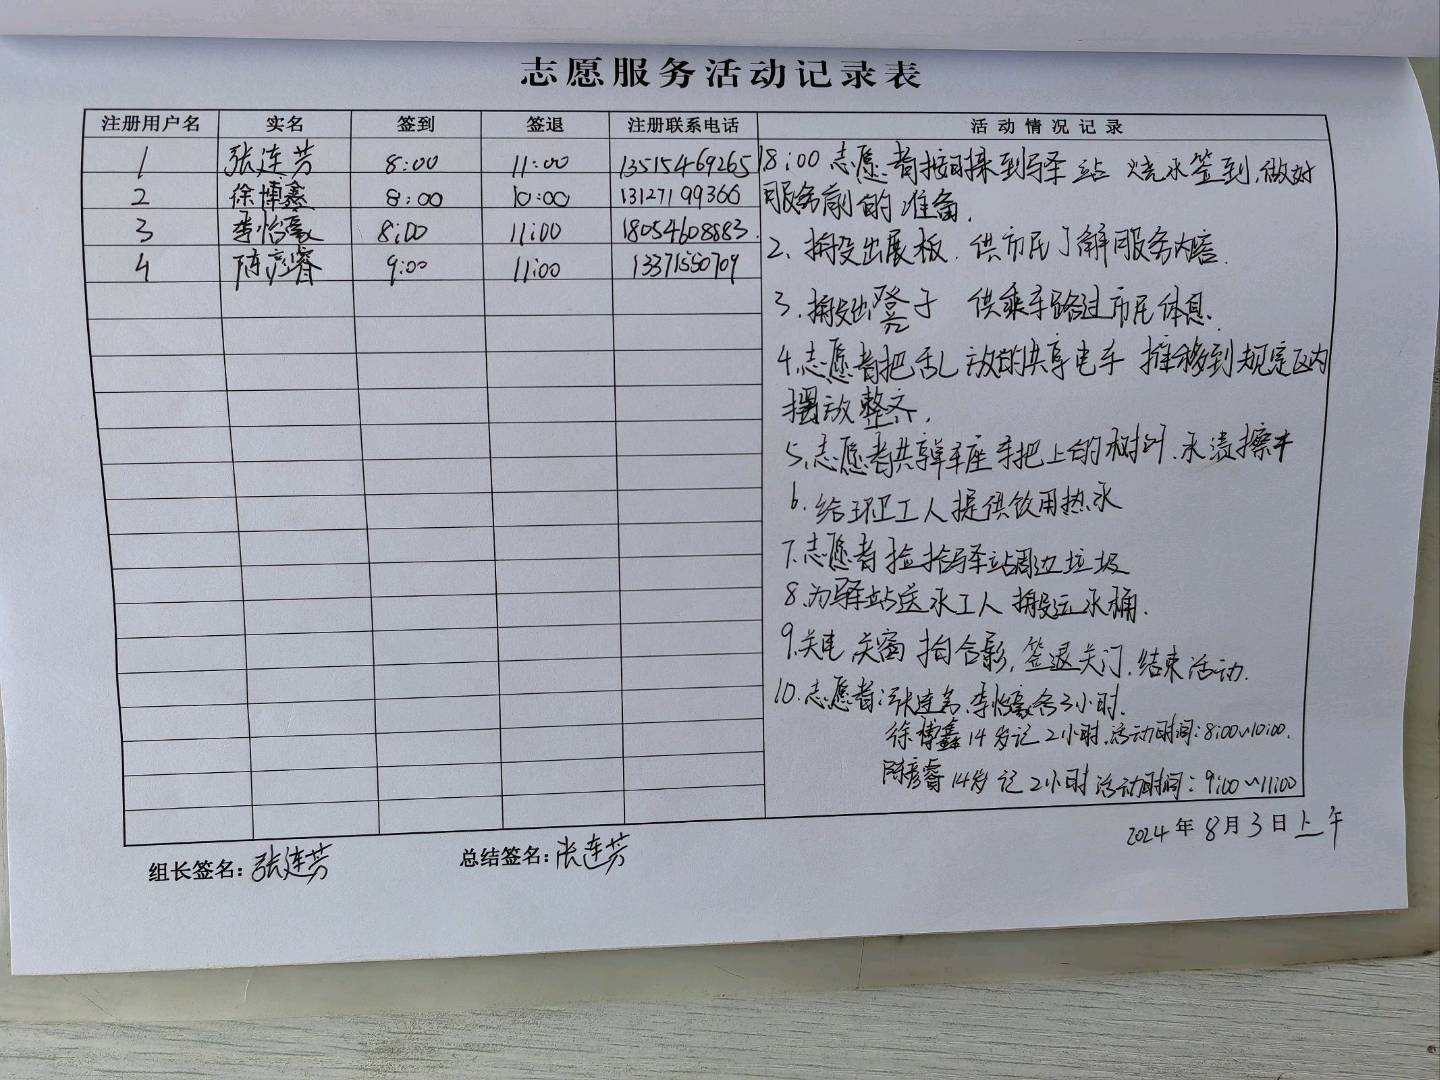 志愿服务活动记录表
注册用户名 实名 签到 签退 注册联系电话 活动情况记录
1 张连芳 8:00 11:00 13515469265
2 徐博鑫 8:00 10:00 13127199366
3 李怡豪 8:00 11:00 18054608883.
4 陈彦睿 9:00 11:00 13371550709
1 8:00 志愿者按时来到驿站 烧水签到,做好
服务前的准备.
2、搬出展板 供市民了解服务内容.
3.搬出凳子 供乘车路过市民休息.
4.志愿者把乱放的共享电车 推移到规定区内
摆放整齐.
5.志愿者共享单车座手把上的树叶.水渍擦干
6.给环卫工人提供饮用热水
7.志愿者捡拾驿站周边垃圾
8.为驿站送水工人 搬运水桶.
9.关电 关窗 拍合影,签退关门.结束活动.
10.志愿者:张连芳.李怡豪各3小时.
徐博鑫14岁记2小时.活动时间:8:00~10:00.
陈彦睿14岁记2小时活动时间:9:00~11:00
2024年8月3日上午
组长签名:张连芳 总结签名:张连芳